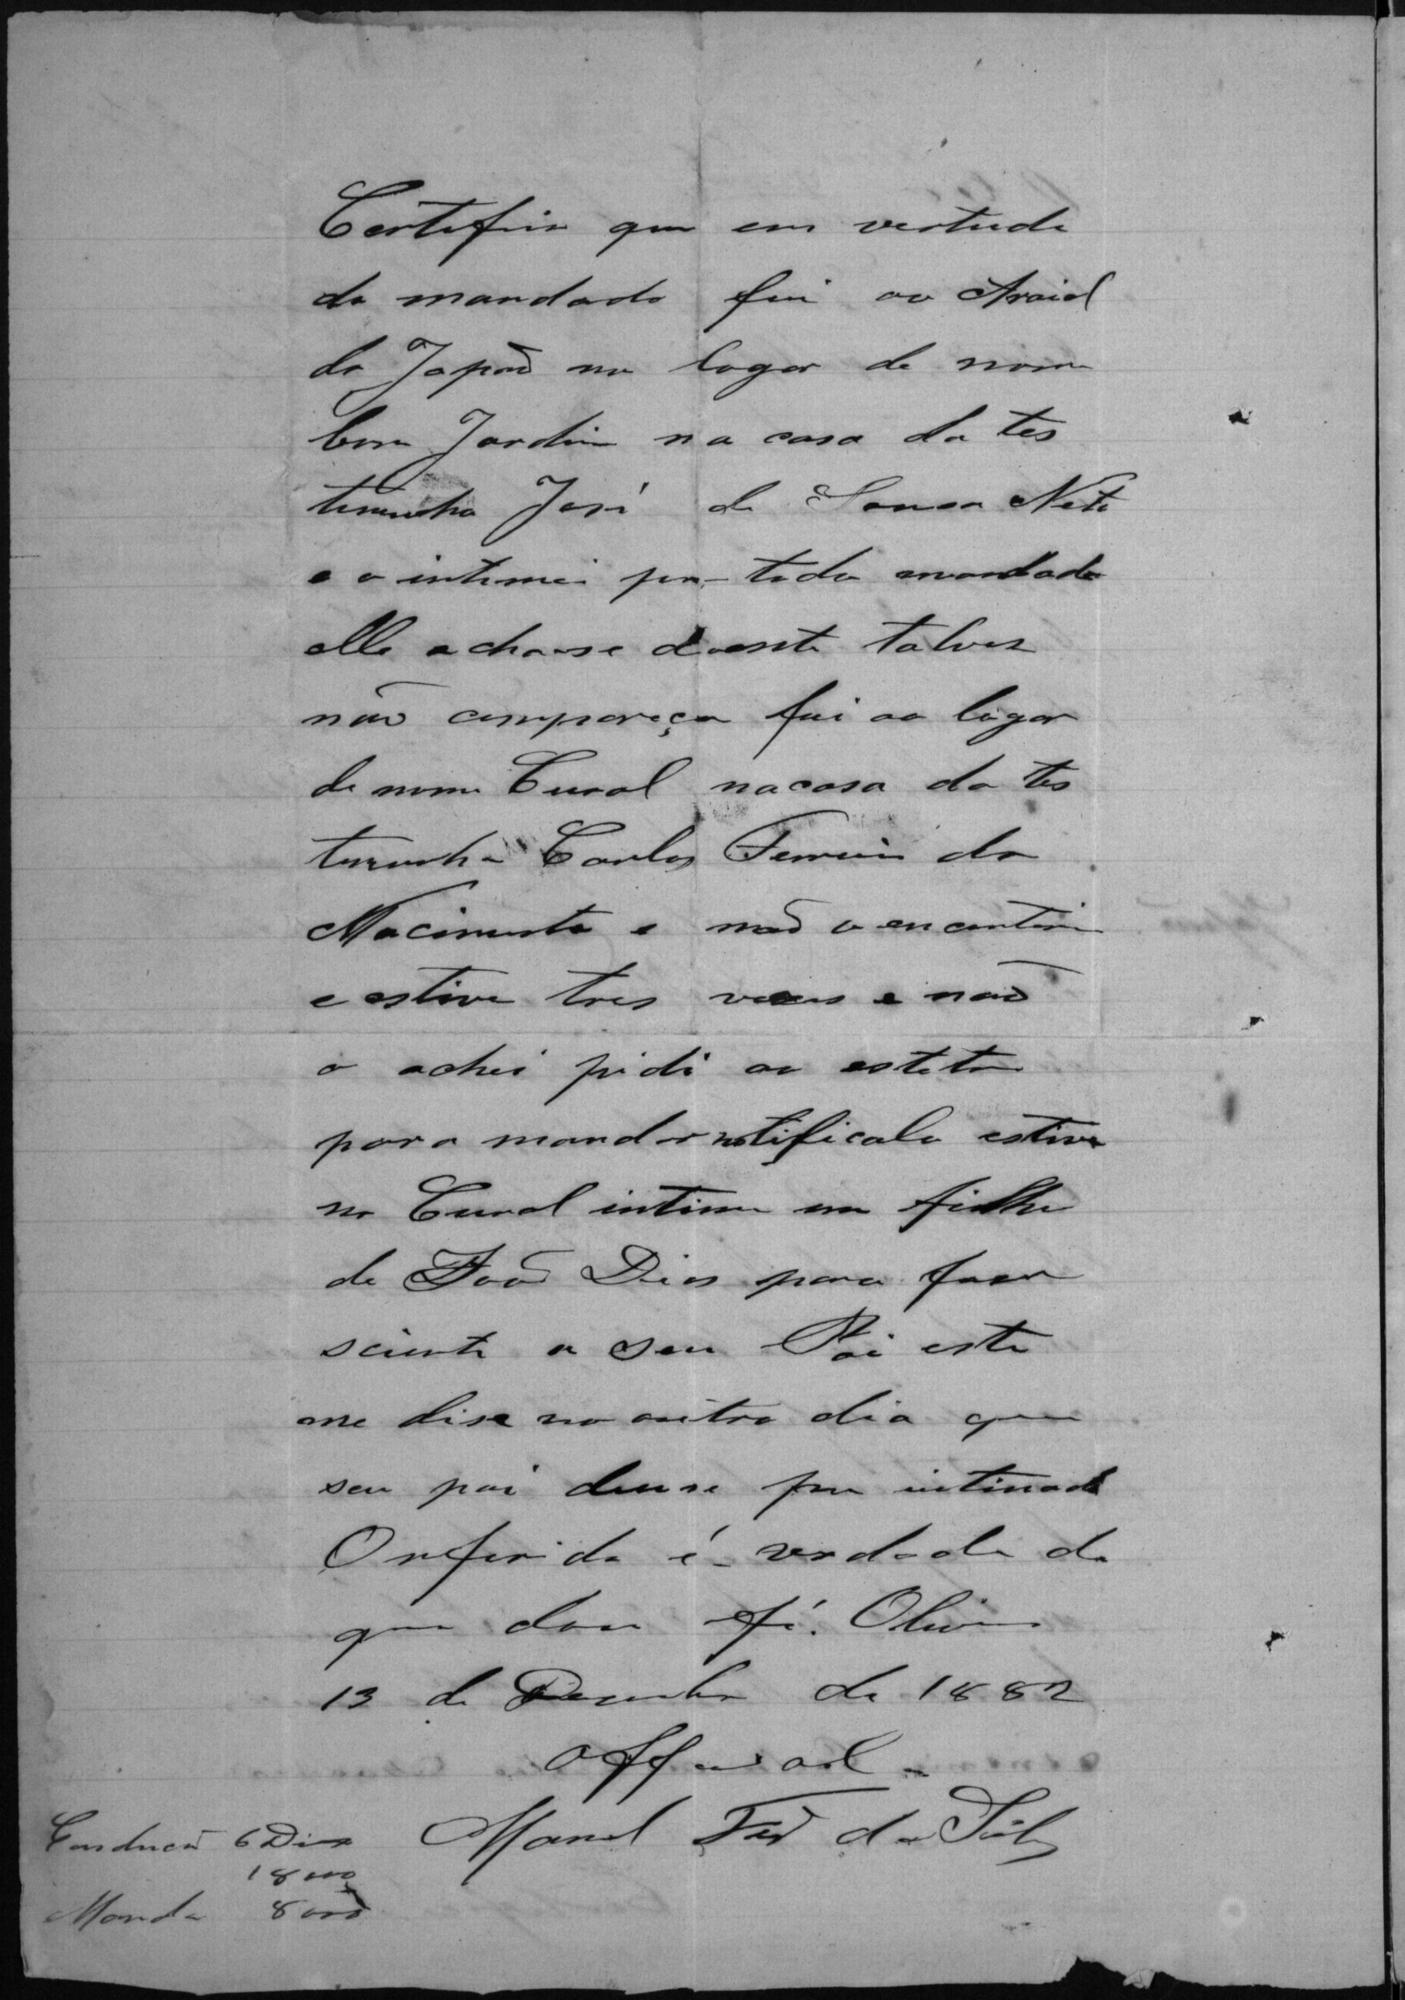 Certefico que em vertude
do mandado fui ao Araial
do Japão no logar de nome
bom Jardim na casa da tes
temunha José de Sousa Neto
e o intimei por todo mandado
elle acha-se doente talves
não compareça fui ao logar
de nome Cural na casa da tes
temunha Carlos Ferreira do
Nacimento e não o encontrei
e estive tres veses e não
o achei pidi ao
para mandar notificalo estive
no Cural intimei um filho
de João Dias para faser
sciente a seu Pai este
me dise no outro dia que
seu pai deuse por intimado
O referido é verdade do
que dou fé. Oliveira
13 de Desembro de 1882
O Official
Manoel Frco da Silva
Condução 6 Dias
18000
Manda 8000